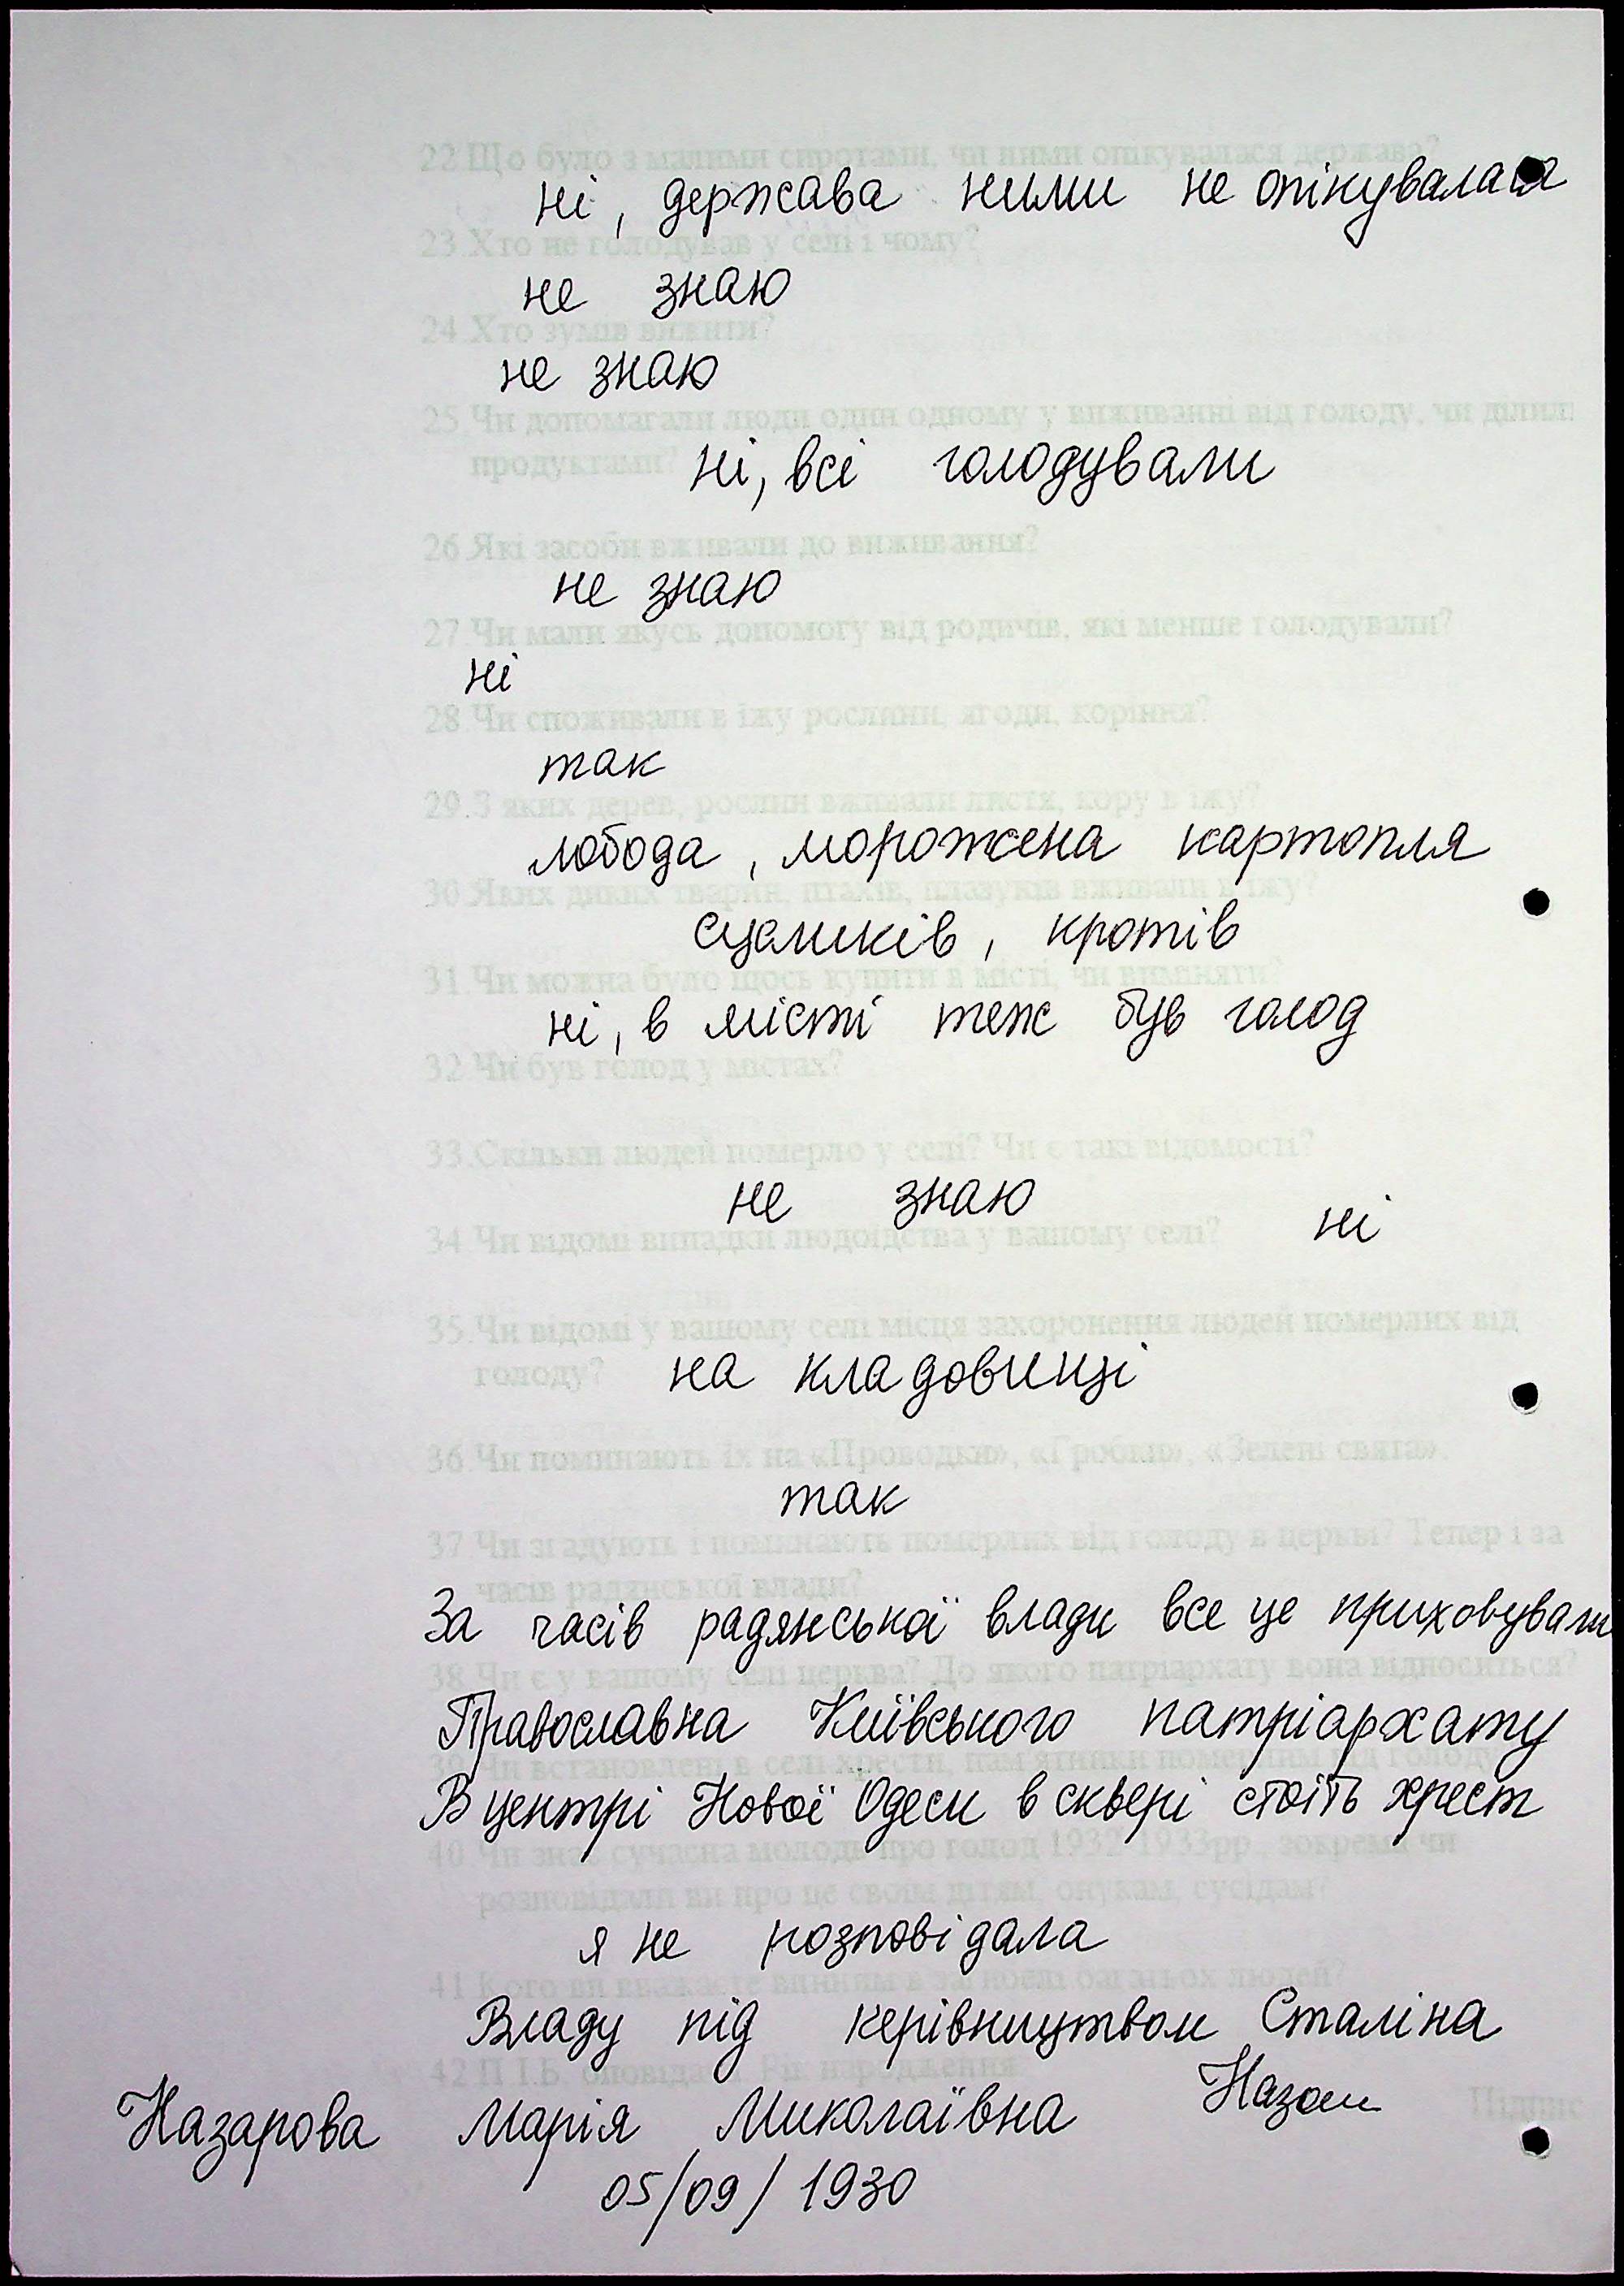 22.Що було з малими сиротами, чи ними опікувалася держава?
ні, держава ними не опікувалася
23.Хто не голодував у селі і чому?
не знаю
24.Хто зумів вижити?
не знаю
25.Чи допомагали люди один одному у виживанні від голоду, чи ділили
продуктами? ні, всі голодували
26.Які засоби вживали до виживання?
не знаю
27.Чи мали якусь допомогу від родичів, які менше голодували?
ні
28.Чи споживали в їжу рослини, ягоди, коріння?
так
29.З яких дерев, рослин вживали листя, кору в їжу?
лобода, морожена картопля
30.Яких диких тварин, птахів, плазунів вживали в їжу?
сусликів, кротів
31.Чи можна було щось купити в місті, чи виміняти?
ні, в місті теж був голод
32.Чи був голод у містах?
33.Скільки людей померло у селі? Чи є такі відомості?
не знаю
34.Чи відомі випадки людоїдства у вашому селі? ні
35.Чи відомі у вашому селі місця захоронення людей померлих від
голоду? на кладовищі
36.Чи поминають їх на «Проводки», «Гробки», «Зелені свята».
так
37.Чи згадують і поминають померлих від голоду в церкві? Тепер і за
часів радянської влади?
За часів радянської влади все це приховували
38.Чи є у вашому селі церква? До якого патріархату вона відноситься?
Православна Київського патріархату
39.Чи встановлені в селі хрести, пам'ятники померлим від голоду
В центрі Нової Одеси в сквері стоїть хрест
40.Чи знає сучасна молодь про голод 1932-1933рр., зокрема чи
розповідали ви про це своїм дітям, онукам, сусідам?
я не розповідала
41.Кого ви вважаєте винним в загибелі багатьох людей?
Владу під керівництвом Сталіна
42.П.І.Б. оповідача. Рік народження Підпис
Назарова Марія Миколаївна
05/09/1930